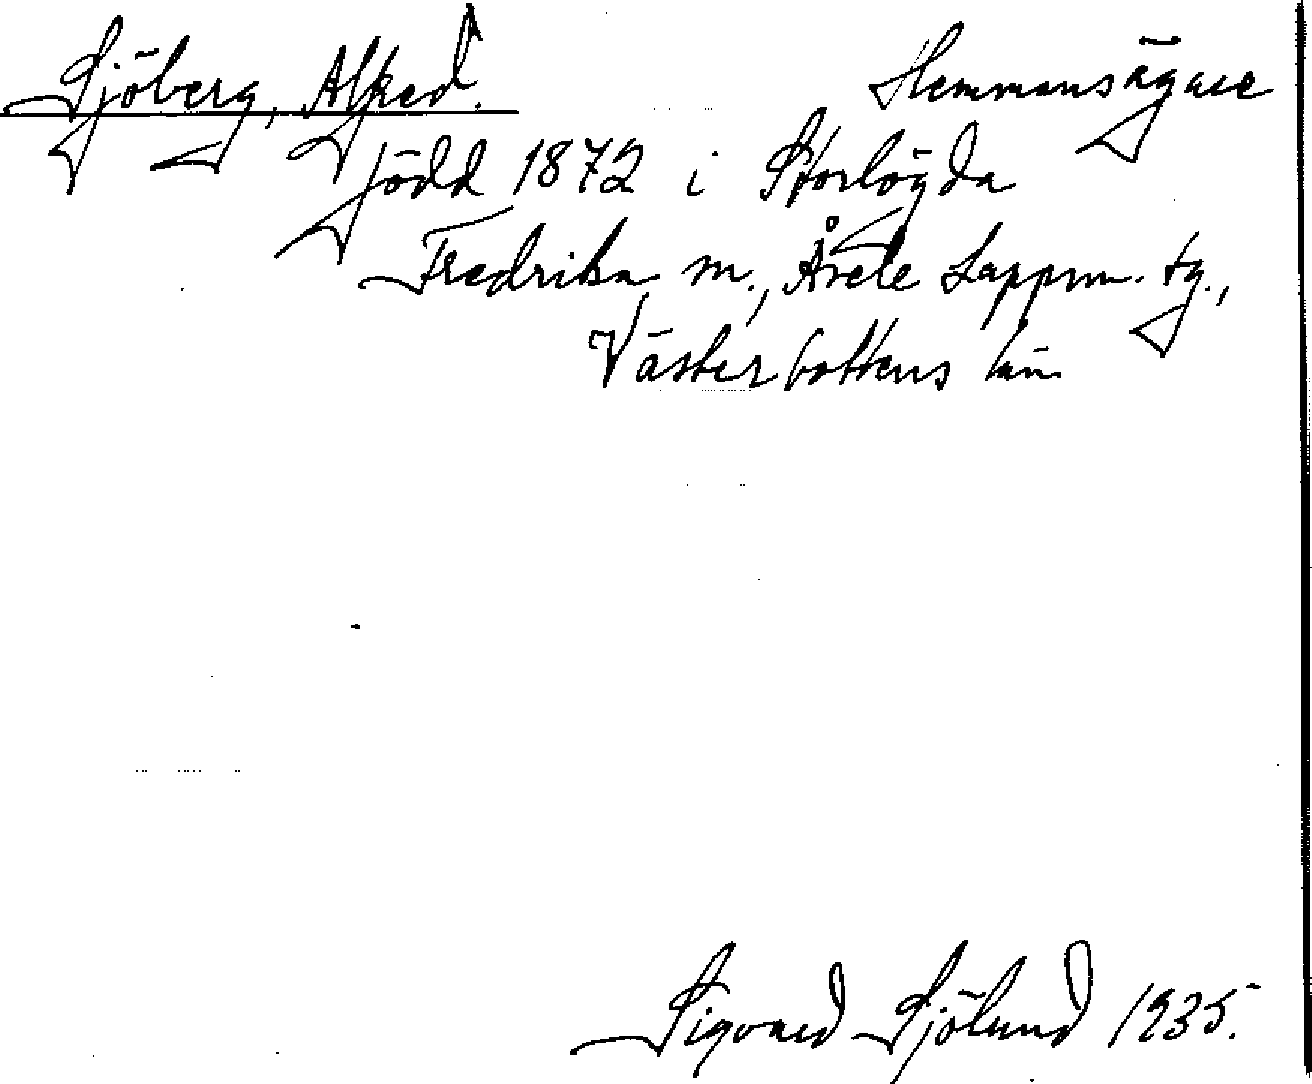 Sjöberg, Alfred. Hemmansägare
född 1872 i Storlögda
Fredrika m., Åsele Lappm. tg.,
Västerbottens län
Sigvard Sjölund 1935.